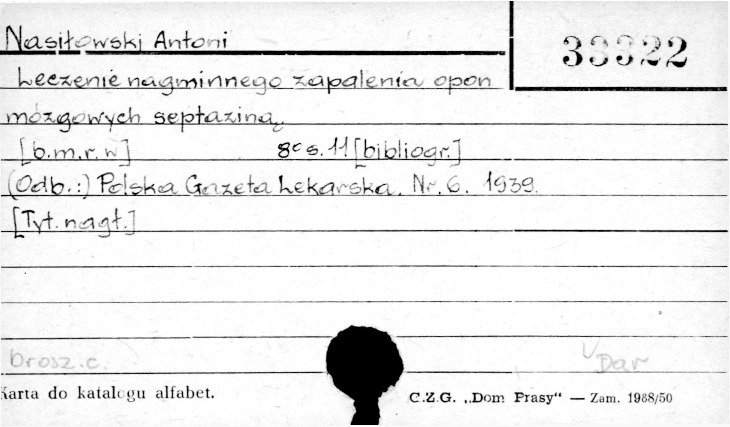 Nasiłowski Antoni
33322
Leczenie nagminnego zapalenia opon
mózgowych septaziną.
[b.m.r.w] 8° s. 11 [bibliogr.]
(Odb.:) Polska Gazeta Lekarska. Nr. 6. 1939.
[Tyt. nagł.]
brosz. c.
Dar
Karta do katalogu alfabet.
C.Z.G. „Dom Prasy“ — Zam. 1968/50